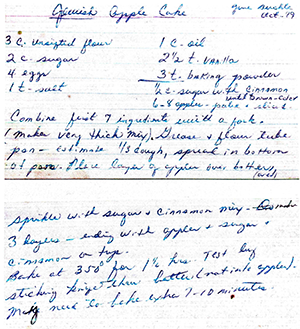 Jewish Apple Cake
Oct. 19
3 C. unsifted flour 1 C. oil
2 c. sugar 2 1/2 t. vanilla
4 eggs 3 t. baking powder
1 t. salt 1/2 c. sugar with cinnamon
until brown color
6-8 apples - peeled + sliced
Combine first 7 ingredients with a fork.
(makes very thick mix). Grease + flour tube
pan - estimate 1/3 dough, spread in bottom
of pan. Place layer of apples over batter,
(over)
sprinkle with sugar + cinnamon mix -
3 layers - ending with apples + sugar +
cinnamon on top.
Bake at 350° for 1 1/2 hrs. Test by
sticking knife thru batter (not into apples).
May need to bake extra 7-10 minutes.